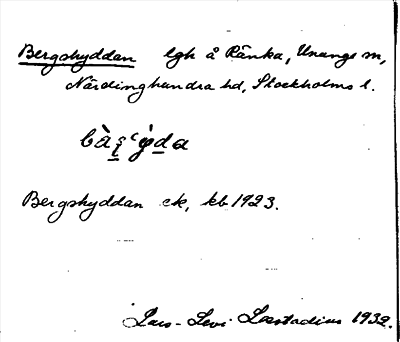 Bergshyddan lgh å Ränka, Ununge sn,
Närdinghundra hd, Stockholms l.
Bergshyddan ek, kb 1923.
Lars-Levi Læstadius 1932.